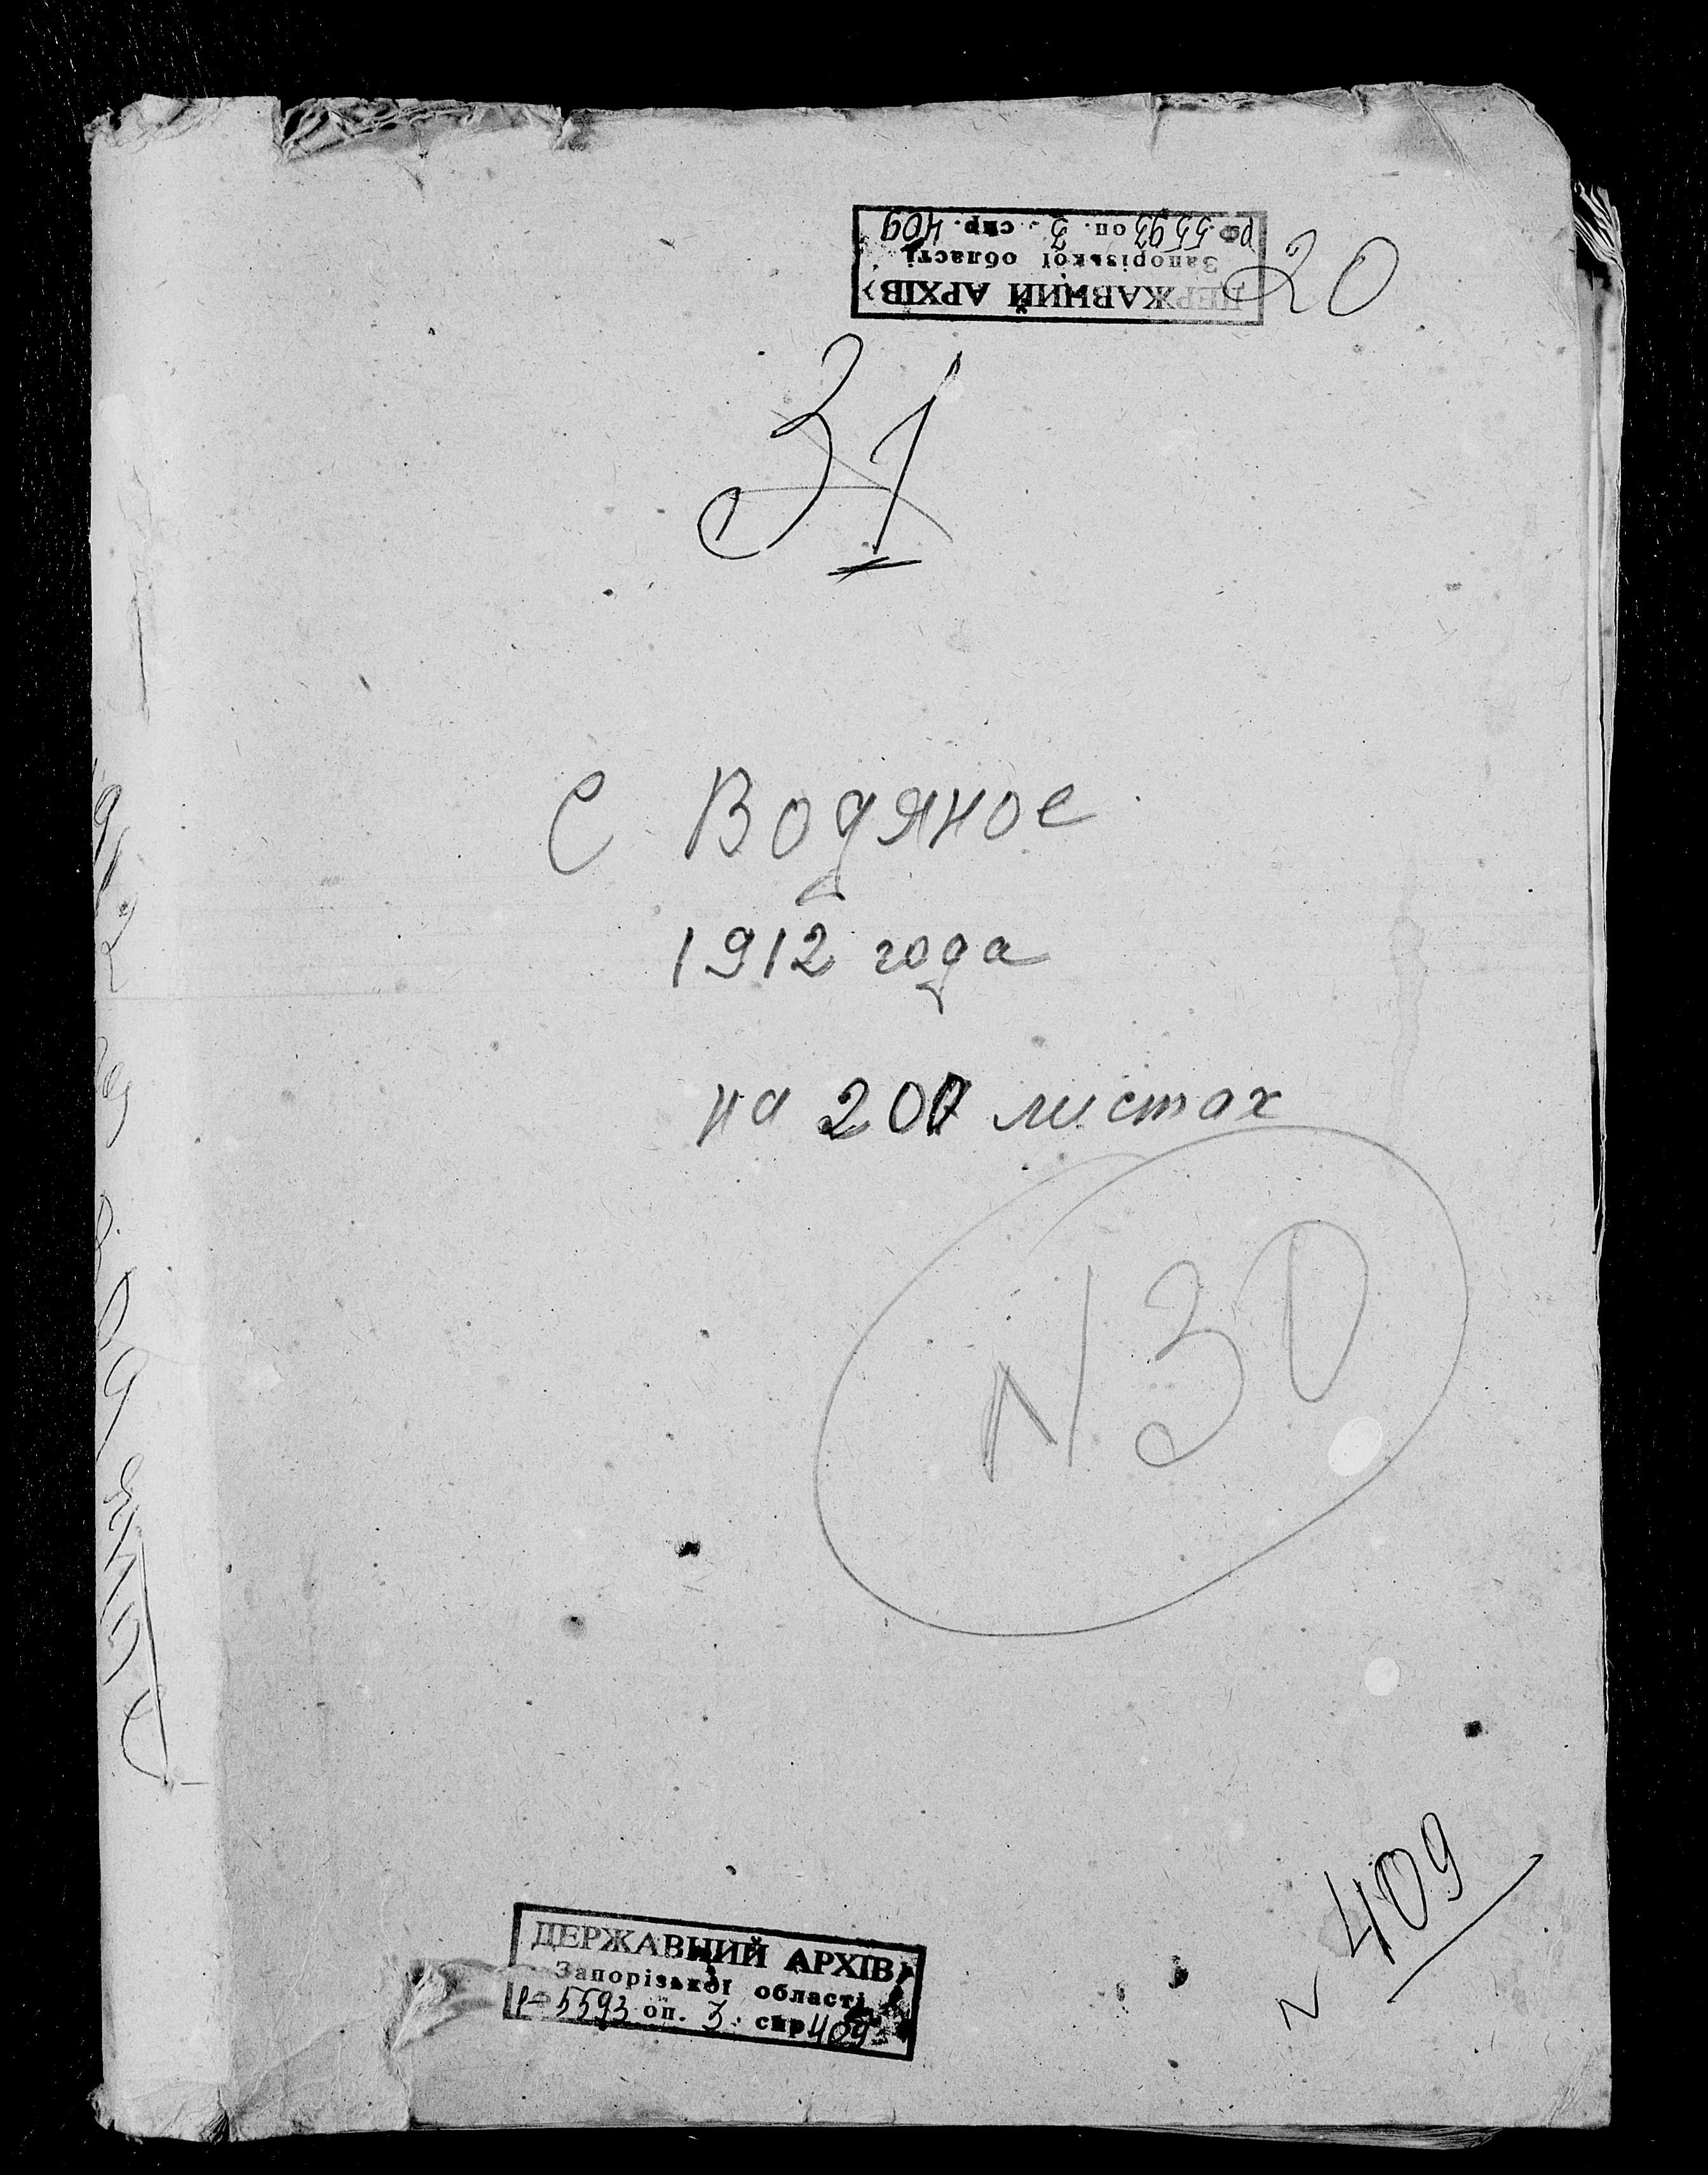 ДЕРЖАВНИЙ АРХІВ
Запорізької області
РФ. 5593 оп. 3. спр. 409
20
31
С Водяное
1912 года
на 207 листах
N 30
N 409
ДЕРЖАВНИЙ АРХІВ
Запорізької області
Р-5593 оп. 3. спр 409